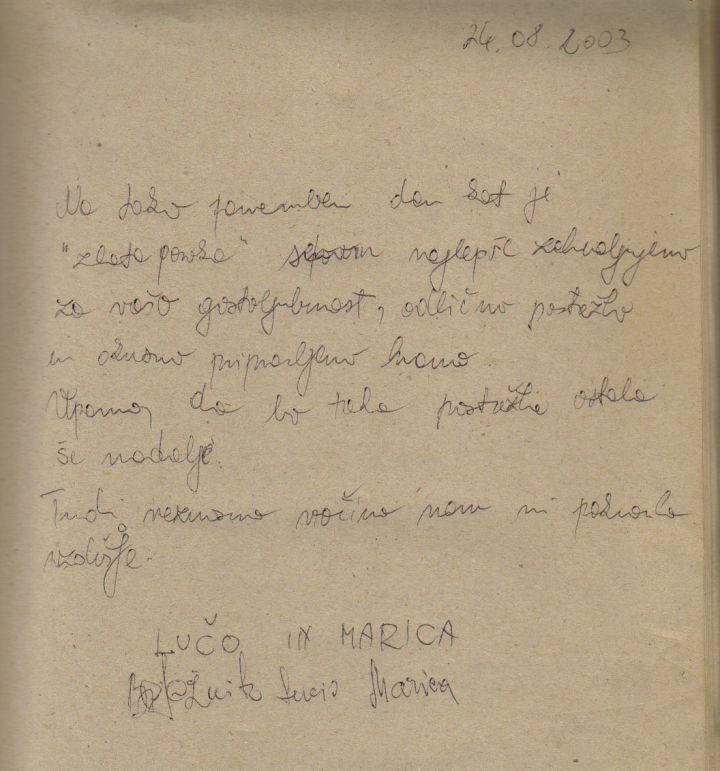 24.08.2003
Na tako pomemben dan kot je
"zlata poroka" najlepše zahvaljujemo
za vašo gostoljubnost, odlično postrežbo
in okusno pripravljeno hrano.
Upamo, da bo taka postrežba ostala
še nadalje.
Tudi vročina nam ni pokvarila
vzdušje.
LUČO IN MARICA
Marica